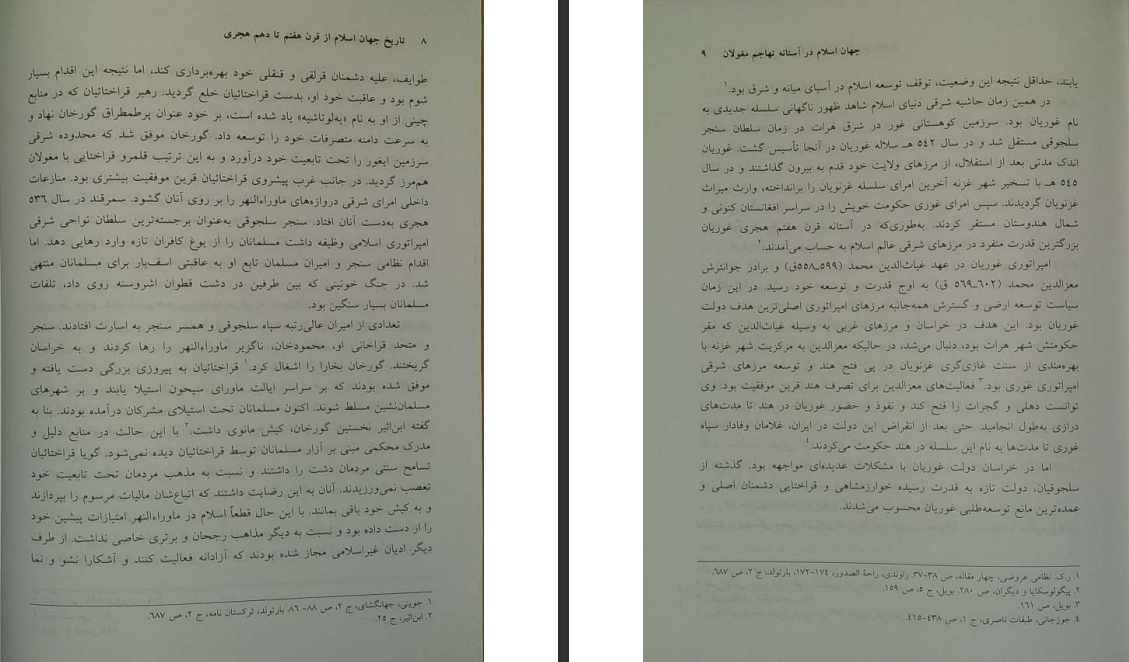 ۸ تاریخ جهان اسلام از قرن هفتم تا دهم هجری
طوایف، علیه دشمنان قرلقی و قنقلی خود بهره‌برداری کند، اما نتیجه این اقدام بسیار
شوم بود و عاقبت خود او، بدست قراختائیان خلع گردید. رهبر قراختائیان که در منابع
چینی از او به نام «یه‌لوتاشیه» یاد شده است، بر خود عنوان پرطمطراق گورخان نهاد و
به سرعت دامنه متصرفات خود را توسعه داد. گورخان موفق شد که محدوده شرقی
سرزمین ایغور را تحت تابعیت خود درآورد و به این ترتیب قلمرو قراختایی با مغولان
هم‌مرز گردید. در جانب غرب پیشروی قراختائیان قرین موفقیت بیشتری بود. منازعات
داخلی امرای شرقی دروازه‌های ماوراءالنهر را بر روی آنان گشود. سمرقند در سال ۵۳٦
هجری به‌دست آنان افتاد. سنجر سلجوقی به‌عنوان برجسته‌ترین سلطان نواحی شرقی
امپراتوری اسلامی وظیفه داشت مسلمانان را از یوغ کافران تازه وارد رهایی دهد. اما
اقدام نظامی سنجر و امیران مسلمان تابع او به عاقبتی اسف‌بار برای مسلمانان منتهی
شد. در جنگ خونینی که بین طرفین در دشت قطوان اشروسنه روی داد، تلفات
مسلمانان بسیار سنگین بود.
تعدادی از امیران عالی‌رتبه سپاه سلجوقی و همسر سنجر به اسارت افتادند. سنجر
و متحد قراخانی او، محمودخان، ناگزیر ماوراءالنهر را رها کردند و به خراسان
گریختند. گورخان بخارا را اشغال کرد.۱ قراختائیان به پیروزی بزرگی دست یافته و
موفق شده بودند که بر سراسر ایالت ماورای سیحون استیلا یابند و بر شهرهای
مسلمان‌نشین مسلط شوند. اکنون مسلمانان تحت استیلای مشرکان درآمده بودند. بنا به
گفته ابن‌اثیر نخستین گورخان، کیش مانوی داشت.۲ با این حالت در منابع دلیل و
مدرک محکمی مبنی بر آزار مسلمانان توسط قراختائیان دیده نمی‌شود. گویا قراختائیان
تسامح سنتی مردمان دشت را داشتند و نسبت به مذهب مردمان تحت تابعیت خود
تعصب نمی‌ورزیدند. آنان به این رضایت داشتند که اتباع‌شان مالیات مرسوم را بپردازند
و به کیش خود باقی بمانند. با این حال قطعاً اسلام در ماوراءالنهر امتیازات پیشین خود
را از دست داده بود و نسبت به دیگر مذاهب رجحان و برتری خاصی نداشت. از طرف
دیگر ادیان غیراسلامی مجاز شده بودند که آزادانه فعالیت کنند و آشکارا نشو و نما
۱. جوینی، جهانگشای، ج ۲، ص ۸۸–۸٦. بارتولد، ترکستان نامه، ج ۲، ص ٦۸۷.
۲. ابن‌اثیر، ج ۲۵.
جهان اسلام در آستانه تهاجم مغولان ۹
یابند، حداقل نتیجه این وضعیت، توقف توسعه اسلام در آسیای میانه و شرق بود.۱
در همین زمان حاشیه شرقی دنیای اسلام شاهد ظهور ناگهانی سلسله جدیدی به
نام غوریان بود. سرزمین کوهستانی غور در شرق هرات در زمان سلطان سنجر
سلجوقی مستقل شد و در سال ۵٤۲ هـ سلاله غوریان در آنجا تأسیس گشت. غوریان
اندک مدتی بعد از استقلال، از مرزهای ولایت خود قدم به بیرون گذاشتند و در سال
۵٤۵ هـ با تسخیر شهر غزنه آخرین امرای سلسله غزنویان را برانداخته، وارث میراث
غزنویان گردیدند. سپس امرای غوری حکومت خویش را در سراسر افغانستان کنونی و
شمال هندوستان مستقر کردند. به‌طوری‌که در آستانه قرن هفتم هجری غوریان
بزرگترین قدرت منفرد در مرزهای شرقی عالم اسلام به حساب می‌آمدند.۲
امپراتوری غوریان در عهد غیاث‌الدین محمد (۵۹۹–۵۵۸ق) و برادر جوانترش
معزالدین محمد (٦۰۲–۵٦۹ ق) به اوج قدرت و توسعه خود رسید. در این زمان
سیاست توسعه ارضی و گسترش همه‌جانبه مرزهای امپراتوری اصلی‌ترین هدف دولت
غوریان بود. این هدف در خراسان و مرزهای غربی به وسیله غیاث‌الدین که مقر
حکومتش شهر هرات بود، دنبال می‌شد، در حالیکه معزالدین به مرکزیت شهر غزنه با
بهره‌مندی از سنت غازی‌گری غزنویان در پی فتح هند و توسعه مرزهای شرقی
امپراتوری غوری بود.۳ فعالیت‌های معزالدین برای تصرف هند قرین موفقیت بود. وی
توانست دهلی و گجرات را فتح کند و نفوذ و حضور غوریان در هند تا مدت‌های
درازی به‌طول انجامید. حتی بعد از انقراض این دولت در ایران، غلامان وفادار سپاه
غوری تا مدت‌ها به نام این سلسله در هند حکومت می‌کردند.٤
اما در خراسان دولت غوریان با مشکلات عدیده‌ای مواجهه بود. گذشته از
سلجوقیان، دولت تازه به قدرت رسیده خوارزمشاهی و قراختایی دشمنان اصلی و
عمده‌ترین مانع توسعه‌طلبی غوریان محسوب می‌شدند.
۱. ر.ک. نظامی عروضی، چهار مقاله، ص ۳۸–۳۷. راوندی، راحة الصدور، ۱۷٤–۱۷۲، بارتولد، ج ۲، ص ٦۸۷.
۲. پیگولوسکایا و دیگران، ص ۲۸۰. بویل، ج ۵، ص ۱۵۹.
۳. بویل، ص ۱٦۱.
٤. جوزجانی، طبقات ناصری، ج ۱، ص ٤۳۸–٤۱۵.